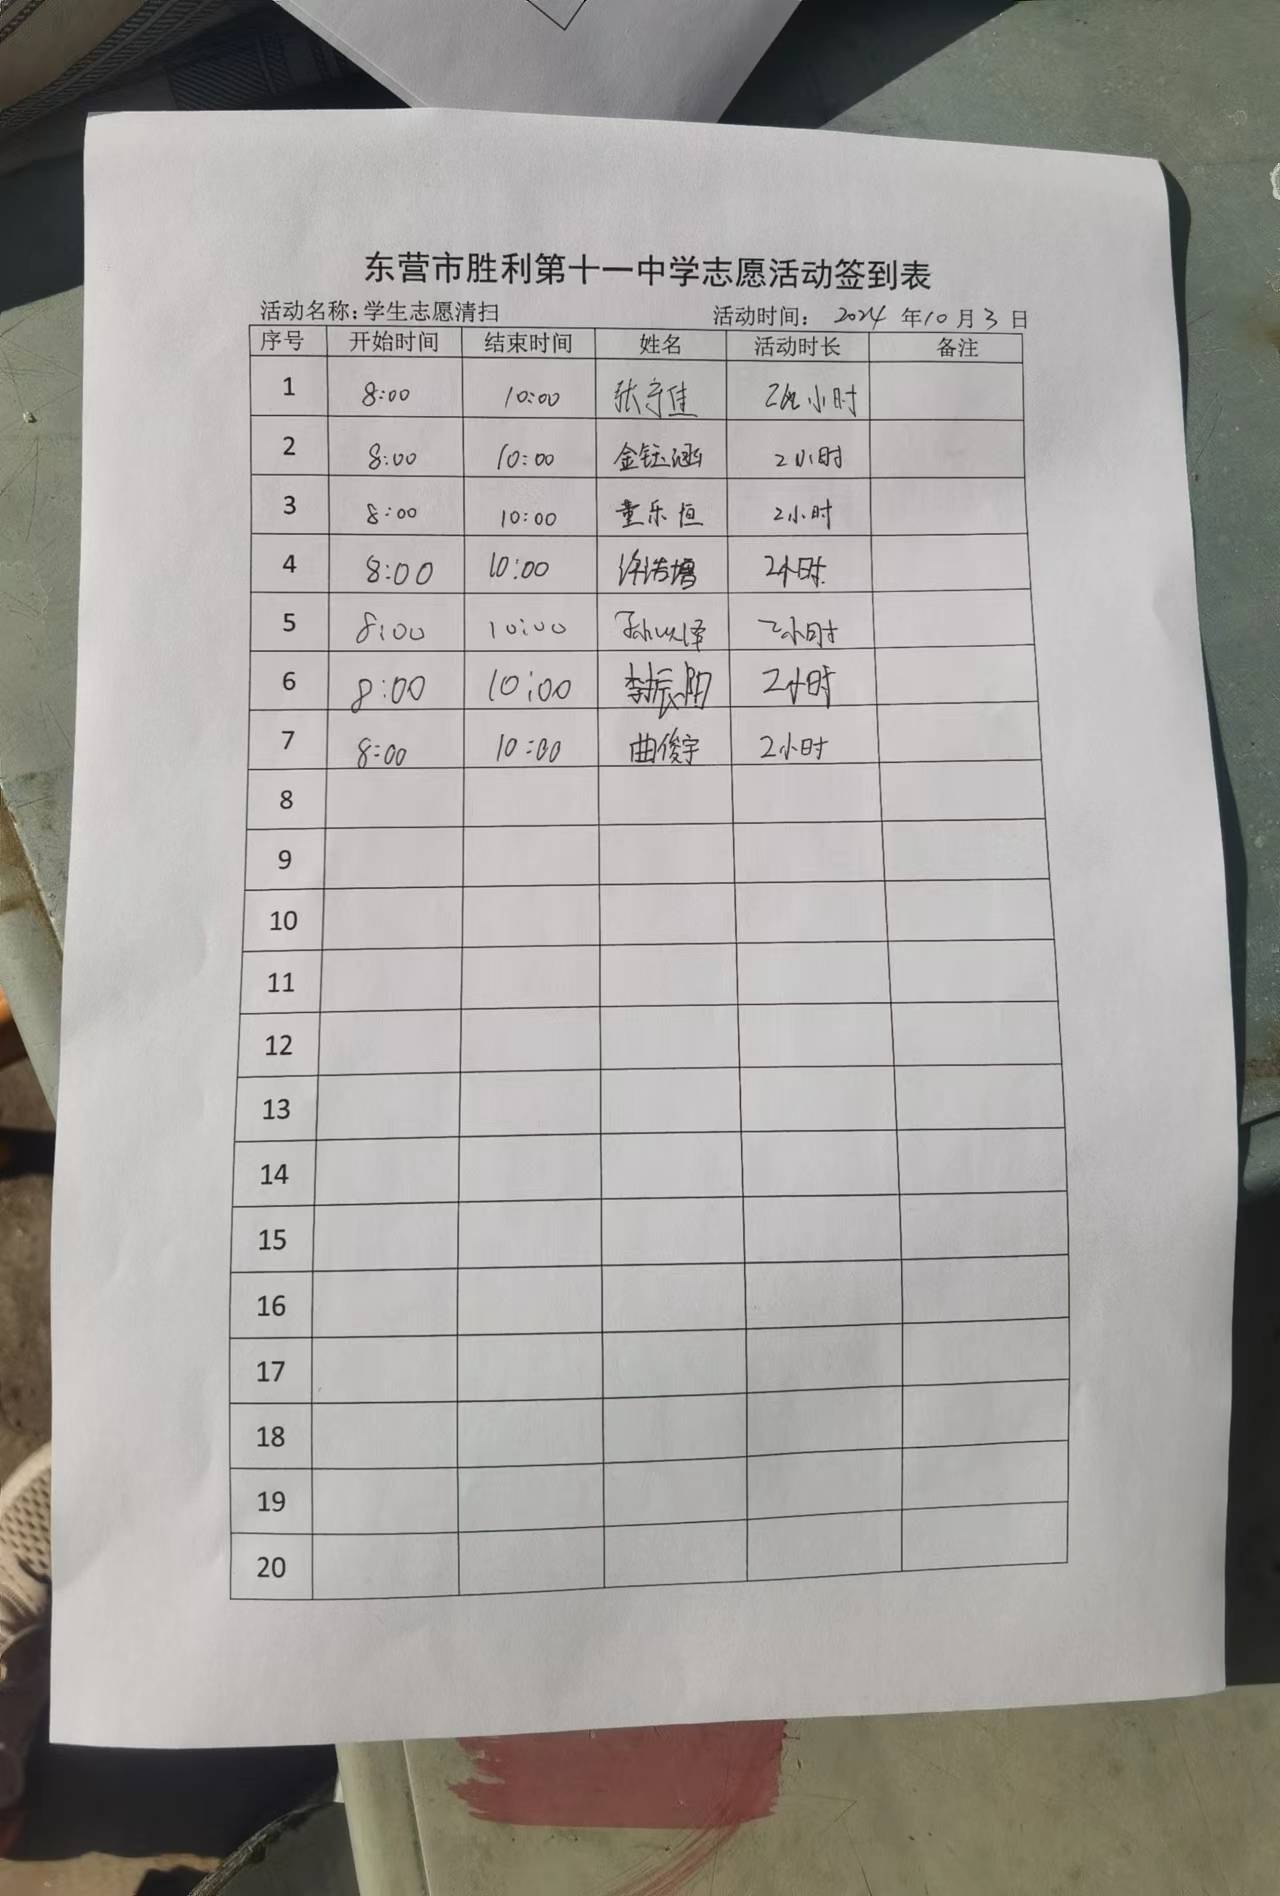 东营市胜利第十一中学志愿活动签到表
活动名称：学生志愿清扫 活动时间： 2024 年10月3日
序号 开始时间 结束时间 姓名 活动时长 备注
1 8:00 10:00 张守佳 小时
2 8:00 10:00 金钰涵 2小时
3 8:00 10:00 童乐恒 2小时
4 8:00 10:00 2小时
5 8:00 10:00 孙以泽 2小时
6 8:00 10:00 李振阳 2小时
7 8:00 10:00 曲俊宇 2小时
8
9
10
11
12
13
14
15
16
17
18
19
20